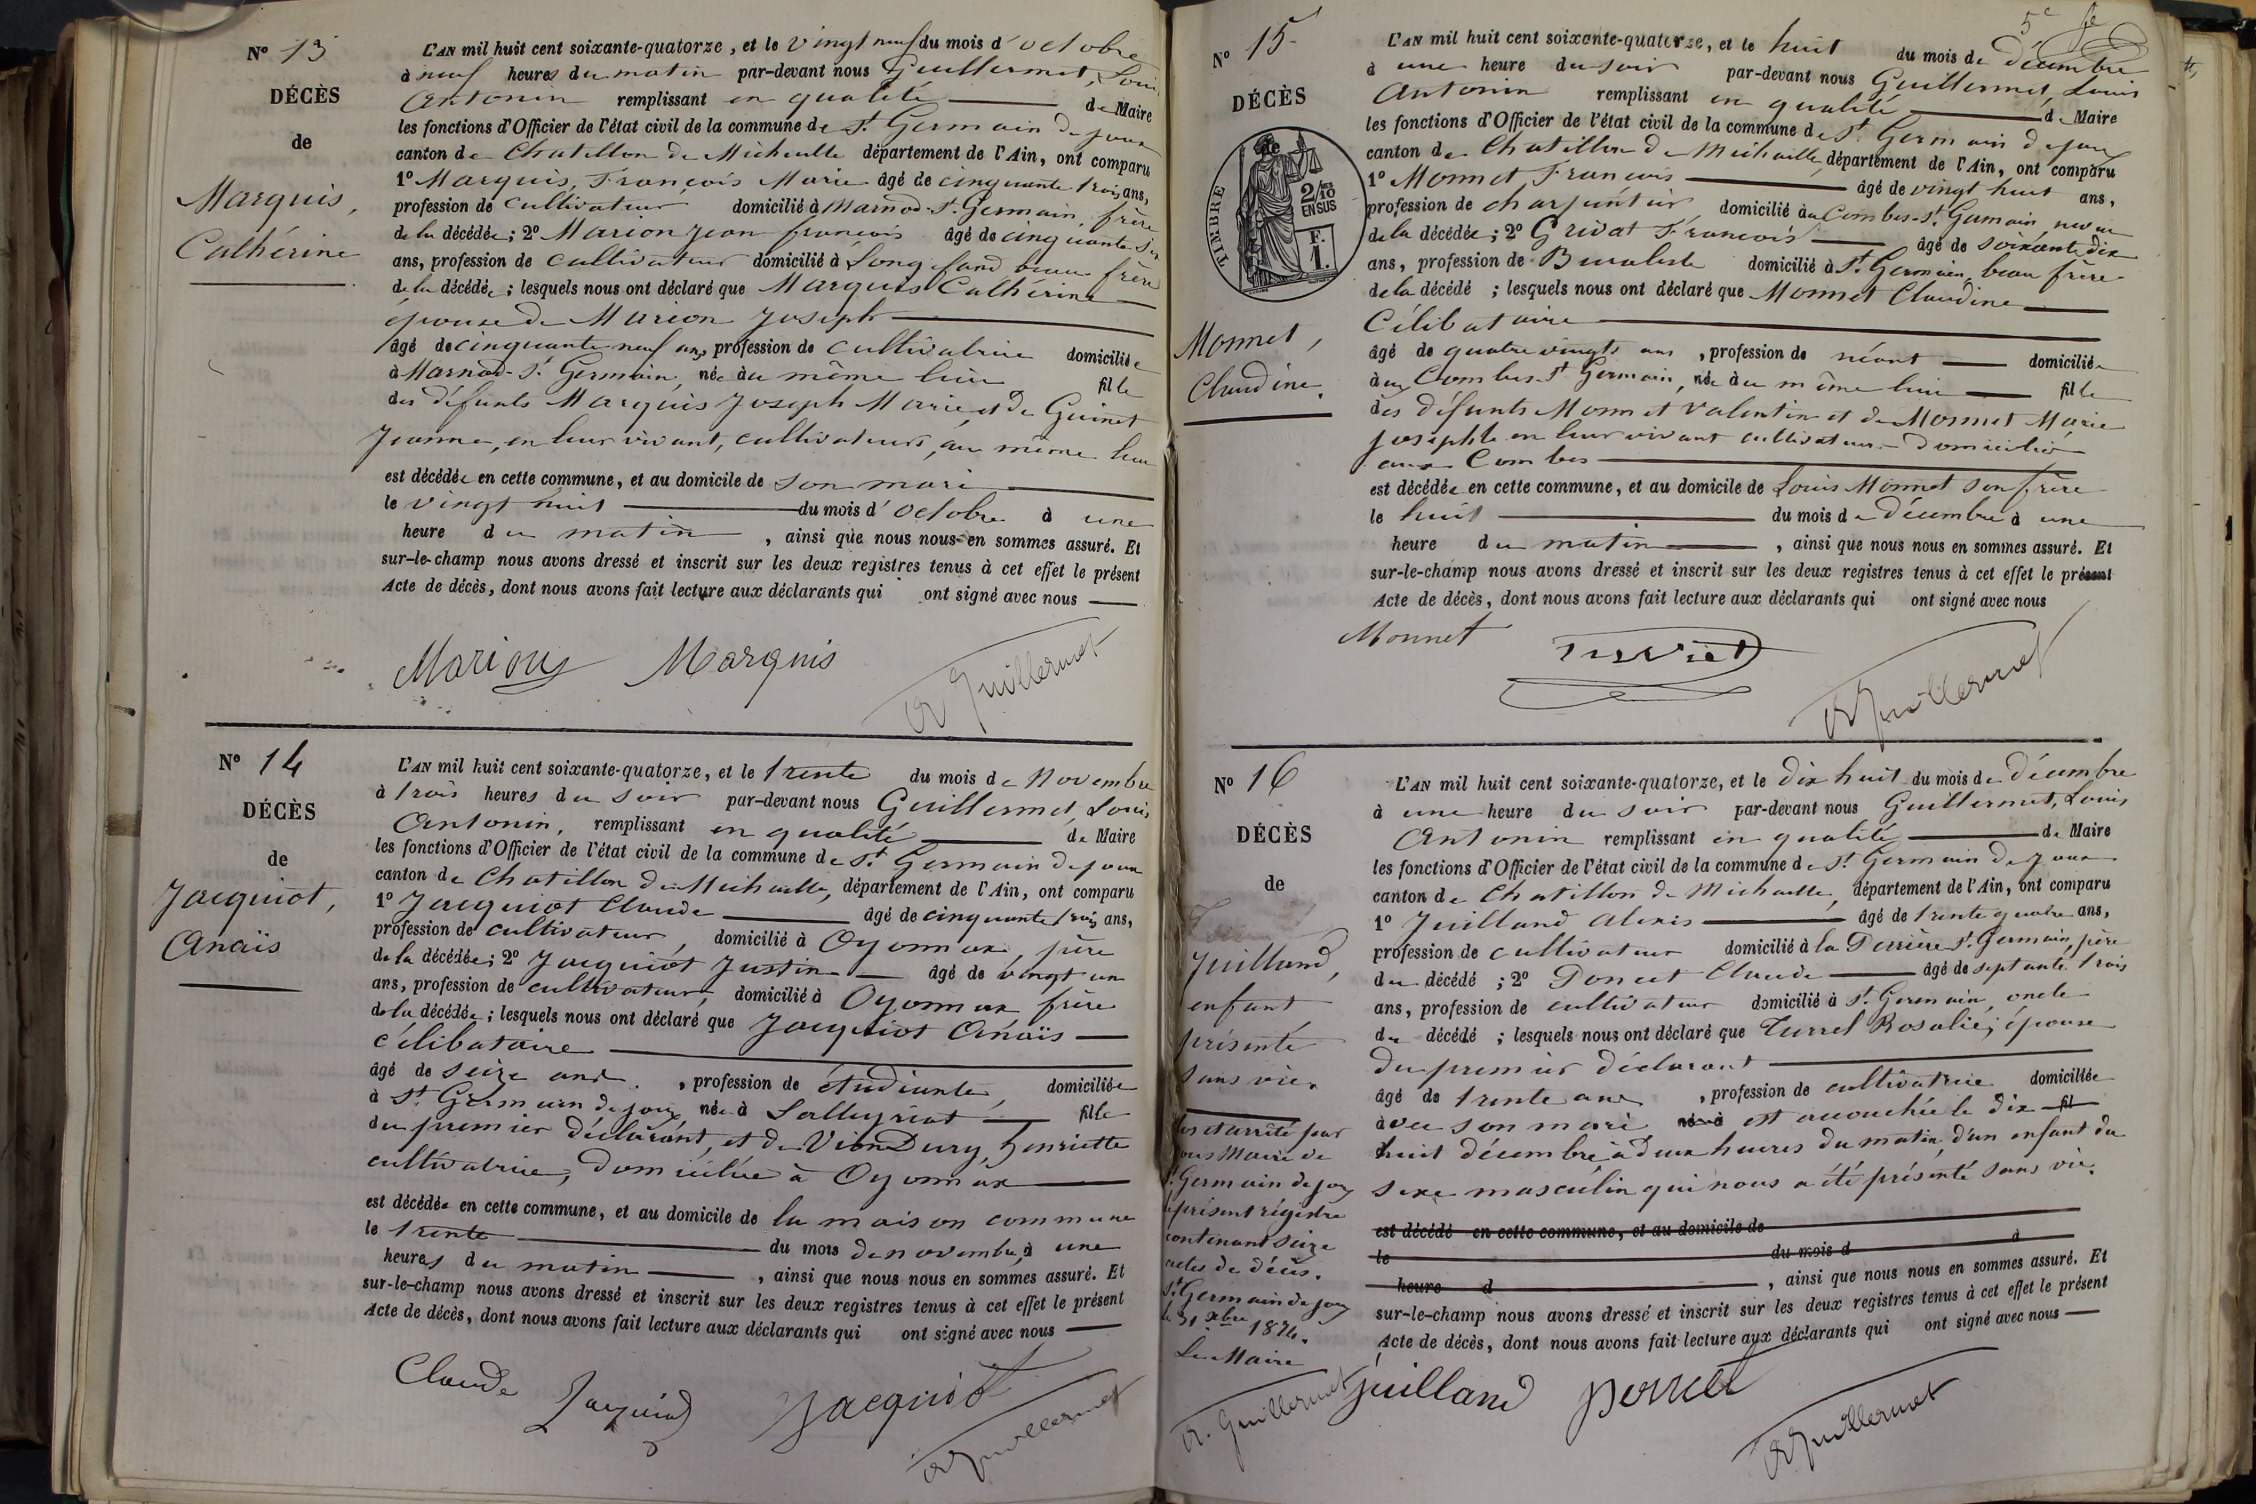 Nº 13
DÉCÈS
de
Marquis,
Cathérine
L'AN mil huit cent soixante-quatorze, et le vingt neuf du mois d'octobre
à neuf heures du matin par-devant nous Guillermet, Louis
Antonin remplissant en qualité de Maire
les fonctions d'Officier de l'état civil de la commune de St. Germain de joux
canton de Chatillon de Michaille département de l'Ain, ont comparu
1º Marquis, François Marie âgé de cinquante trois ans,
profession de cultivateur domicilié à Marnod-St. Germain, frère
de la décédée; 2º Marion Jean françois âgé de cinquante six
ans, profession de cultivateur domicilié à Longefand beau frère
de la décédée; lesquels nous ont déclaré que Marquis Cathérine
épouse de Marion Joseph
âgé de cinquante neuf ans, profession de cultivatrice domiciliée
à Marnod-St. Germain, née au même lieu fille
des défunts Marquis Joseph Marie et de Guinet
Jeanne, en leur vivant, cultivateurs, au même lieu
est décédée en cette commune, et au domicile de son mari
le vingt huit du mois d'octobre à une
heure du matin, ainsi que nous nous en sommes assuré. Et
sur-le-champ nous avons dressé et inscrit sur les deux registres tenus à cet effet le présent
Acte de décès, dont nous avons fait lecture aux déclarants qui ont signé avec nous
Marion Marquis A Guillermet
Nº 14
DÉCÈS
de
Jacquiot,
Anaïs
L'AN mil huit cent soixante-quatorze, et le trente du mois de Novembre
à trois heures du soir par-devant nous Guillermet, Louis
Antonin, remplissant en qualité de Maire
les fonctions d'Officier de l'état civil de la commune de St. Germain de joux
canton de Chatillon de Michaille, département de l'Ain, ont comparu
1º Jacquiot Claude âgé de cinquante trois ans,
profession de cultivateur, domicilié à Oyonnax, père
de la décédée; 2º Jacquiot Justin âgé de vingt un
ans, profession de cultivateur, domicilié à Oyonnax, frère
de la décédée; lesquels nous ont déclaré que Jacquiot Anaïs
célibataire
âgé de seize ans, profession de étudiante, domiciliée
à St. Germain de joux, née à Salleyriat fille
du premier déclarant, et de Vion Dury, henriette
cultivatrice, domiciliée à Oyonnax
est décédée en cette commune, et au domicile de la maison commune
le trente du mois de novembre, à une
heures du matin, ainsi que nous nous en sommes assuré. Et
sur-le-champ nous avons dressé et inscrit sur les deux registres tenus à cet effet le présent
Acte de décès, dont nous avons fait lecture aux déclarants qui ont signé avec nous
Claude Jacquiot Jacquiot A Guillermet
5e fe
Nº 15
DÉCÈS
de
TIMBRE
2/10
EN SUS
F.
1.
Monnet,
Claudine.
L'AN mil huit cent soixante-quatorze, et le huit du mois de décembre
à une heure du soir par-devant nous Guillermet, Louis
Antonin remplissant en qualité de Maire
les fonctions d'Officier de l'état civil de la commune de St. Germain de joux
canton de Chatillon de Michaille, département de l'Ain, ont comparu
1º Monnet François âgé de vingt huit ans,
profession de charpentier domicilié au Combes-St. Germain neveu
de la décédée; 2º Grivat François âgé de soixante dix
ans, profession de Buraliste domicilié à St. Germain, beau frère
de la décédé; lesquels nous ont déclaré que Monnet Claudine
Célibataire
âgé de quatre vingts ans, profession de néant domiciliée
aux Combes-St Germain, née au même lieu fille
des défunts Monnet Valentin et de Monnet Marie
Josephte en leur vivant cultivateurs domiciliés
aux Combes
est décédée en cette commune, et au domicile de Louis Monnet son frère
le huit du mois de décembre à une
heure du matin, ainsi que nous nous en sommes assuré. Et
sur-le-champ nous avons dressé et inscrit sur les deux registres tenus à cet effet le présent
Acte de décès, dont nous avons fait lecture aux déclarants qui ont signé avec nous
Monnet A Guillermet
Nº 16
DÉCÈS
de
Juilland,
enfant
présenté
sans vie.
L'AN mil huit cent soixante-quatorze, et le dix huit du mois de décembre
à une heure du soir par-devant nous Guillermet, Louis
Antonin remplissant en qualité de Maire
les fonctions d'Officier de l'état civil de la commune de St. Germain de joux
canton de Chatillon de Michaille, département de l'Ain, ont comparu
1º Juilland Alexis âgé de trente quatre ans,
profession de cultivateur domicilié à la Perrière St. Germain, père
du décédé; 2º Poncet Claude âgé de septante trois
ans, profession de cultivateur domicilié à St. Germain, oncle
du décédé; lesquels nous ont déclaré que Turrel Rosalie, épouse
du premier déclarant
âgé de trente ans, profession de cultivatrice domiciliée
avec son mari né à est accouchée le dix fil
huit décembre à deux heures du matin, d'un enfant du
sexe masculin qui nous a été présenté sans vie.
est décédé en cette commune, et au domicile de
le du mois d à
heure d, ainsi que nous nous en sommes assuré. Et
sur-le-champ nous avons dressé et inscrit sur les deux registres tenus à cet effet le présent
Acte de décès, dont nous avons fait lecture aux déclarants qui ont signé avec nous
et arrêté par
nous Maire de
St Germain de joux
le présent régistre
contenant seize
actes de décès.
St. Germain de joux
le 31 xbre 1874.
Le Maire
A. Guillermet Juilland Poncet A Guillermet